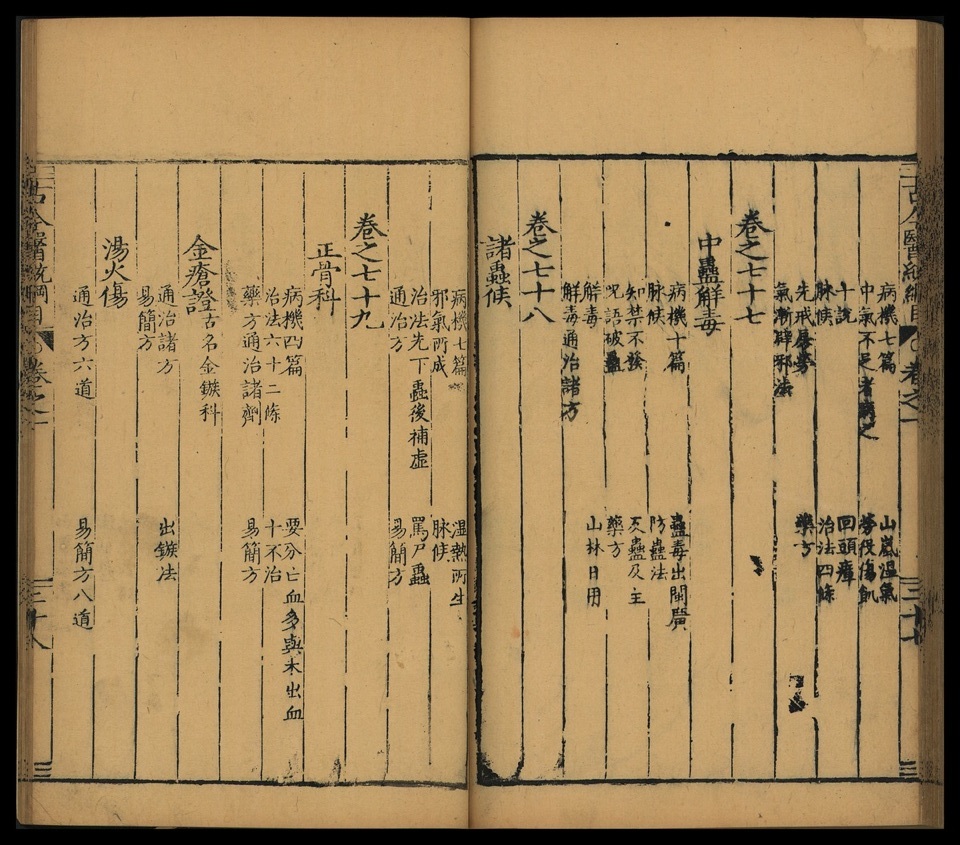 病機七篇 山嵐溫氣
中氣不足者病之 勞役傷飢
十說 回頭瘴
脉候 治法四條
先戒暴勞 藥方
氣漸辟邪法
卷之七十七
中蠱解毒
病機十篇 蠱毒出閩廣
脉候 防蠱法
知禁不發 反蠱及主
呪語破蠱 藥方
解毒 山林日用
解毒通治諸方
卷之七十八
諸蟲候
病機七篇 湿熱所生
邪氣所成 脉候
治法先下蟲後補虛 罵尸蟲
通治方 易簡方
卷之七十九
正骨科
病機四篇 要分亡血多與未出血
治法六十二條 十不治
藥方通治諸劑 易簡方
金瘡證古名金鏃科
通治諸方 出鏃法
易簡方
湯火傷
通治方六道 易簡方八道
古今醫統綱目 卷之一 三十八